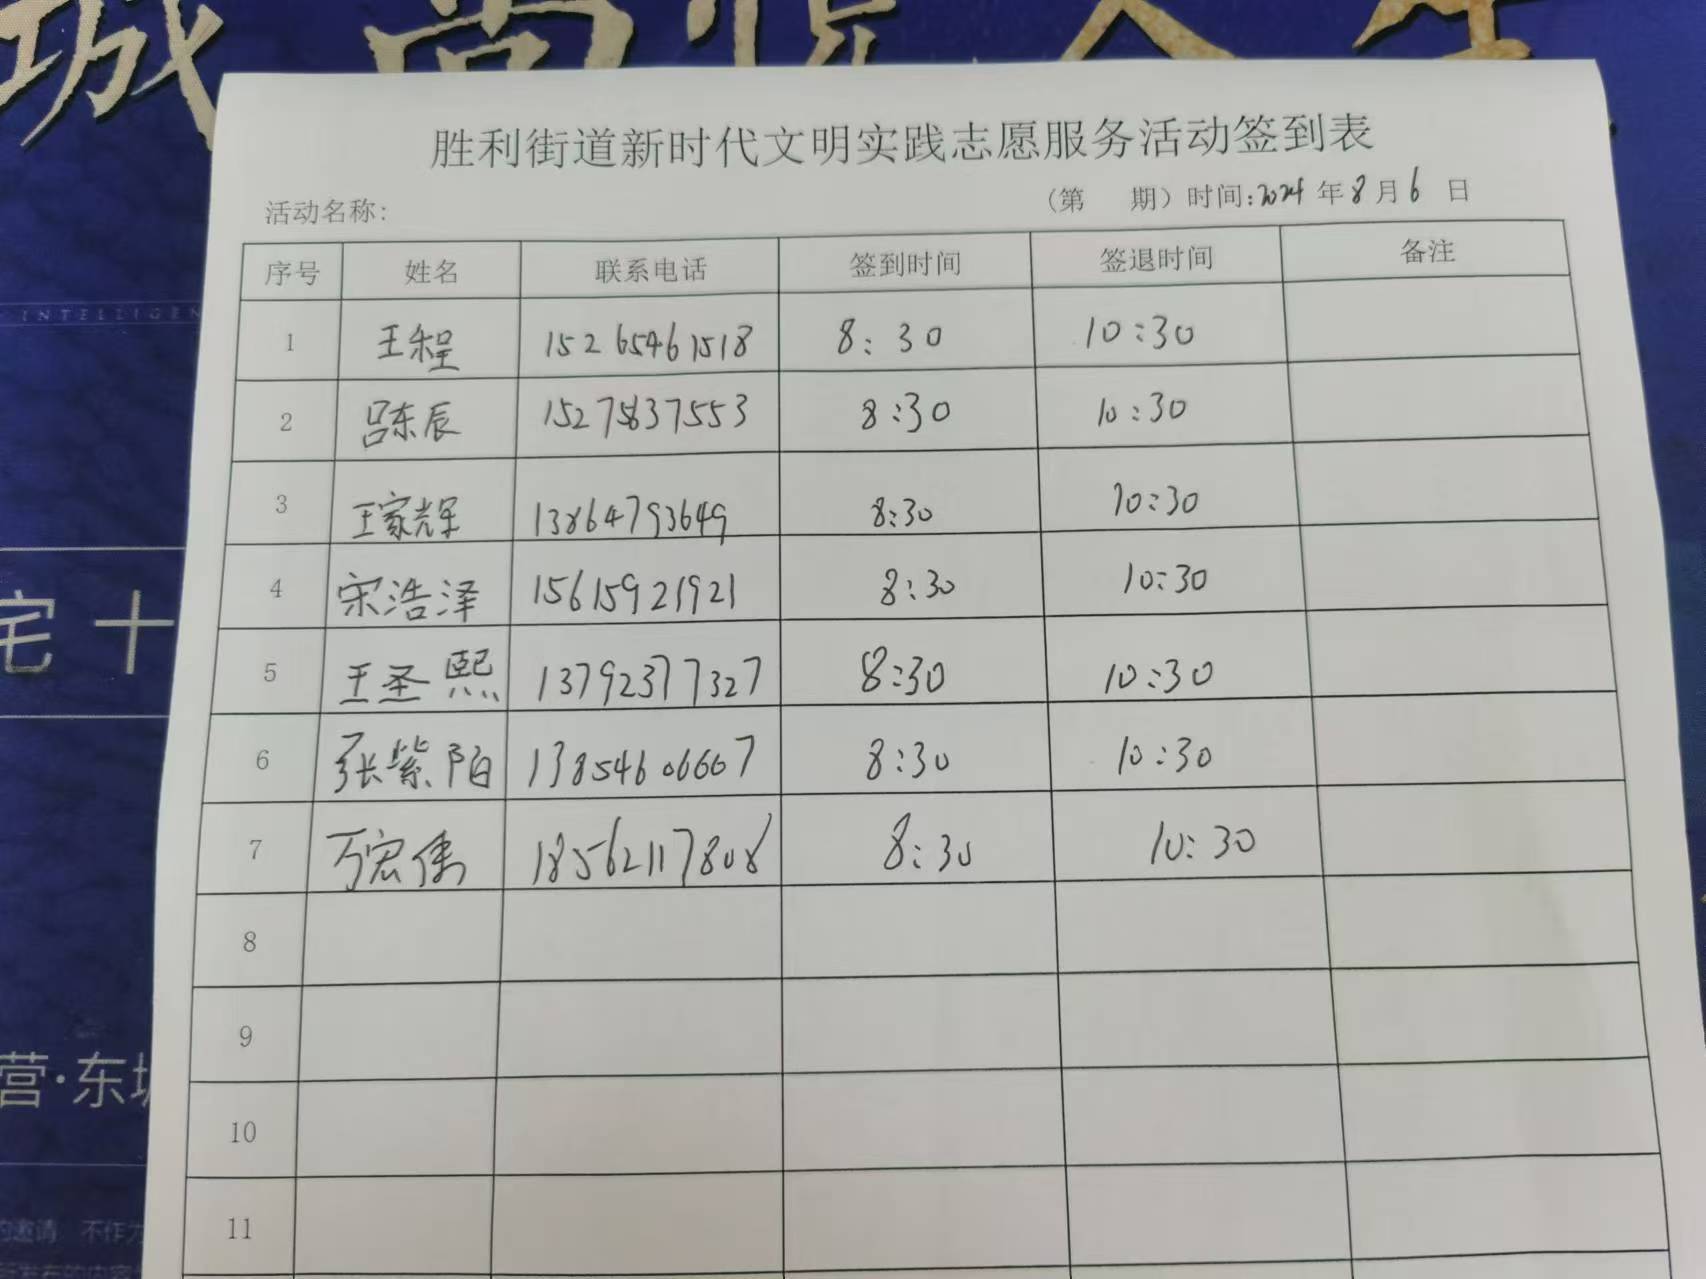 城 尚悦人生
INTELLIGEN
宅 十
营·东城
的邀请 不作为
胜利街道新时代文明实践志愿服务活动签到表
活动名称: (第 期) 时间:2024 年 8 月 6 日
序号 姓名 联系电话 签到时间 签退时间 备注
1 王程 15265461518 8:30 10:30
2 吕东辰 15275837553 8:30 10:30
3 王家辉 13864793649 8:30 10:30
4 宋浩泽 15615921921 8:30 10:30
5 王圣熙 13792377327 8:30 10:30
6 张紫阳 13854606667 8:30 10:30
7 丁宏伟 18562117808 8:30 10:30
8
9
10
11